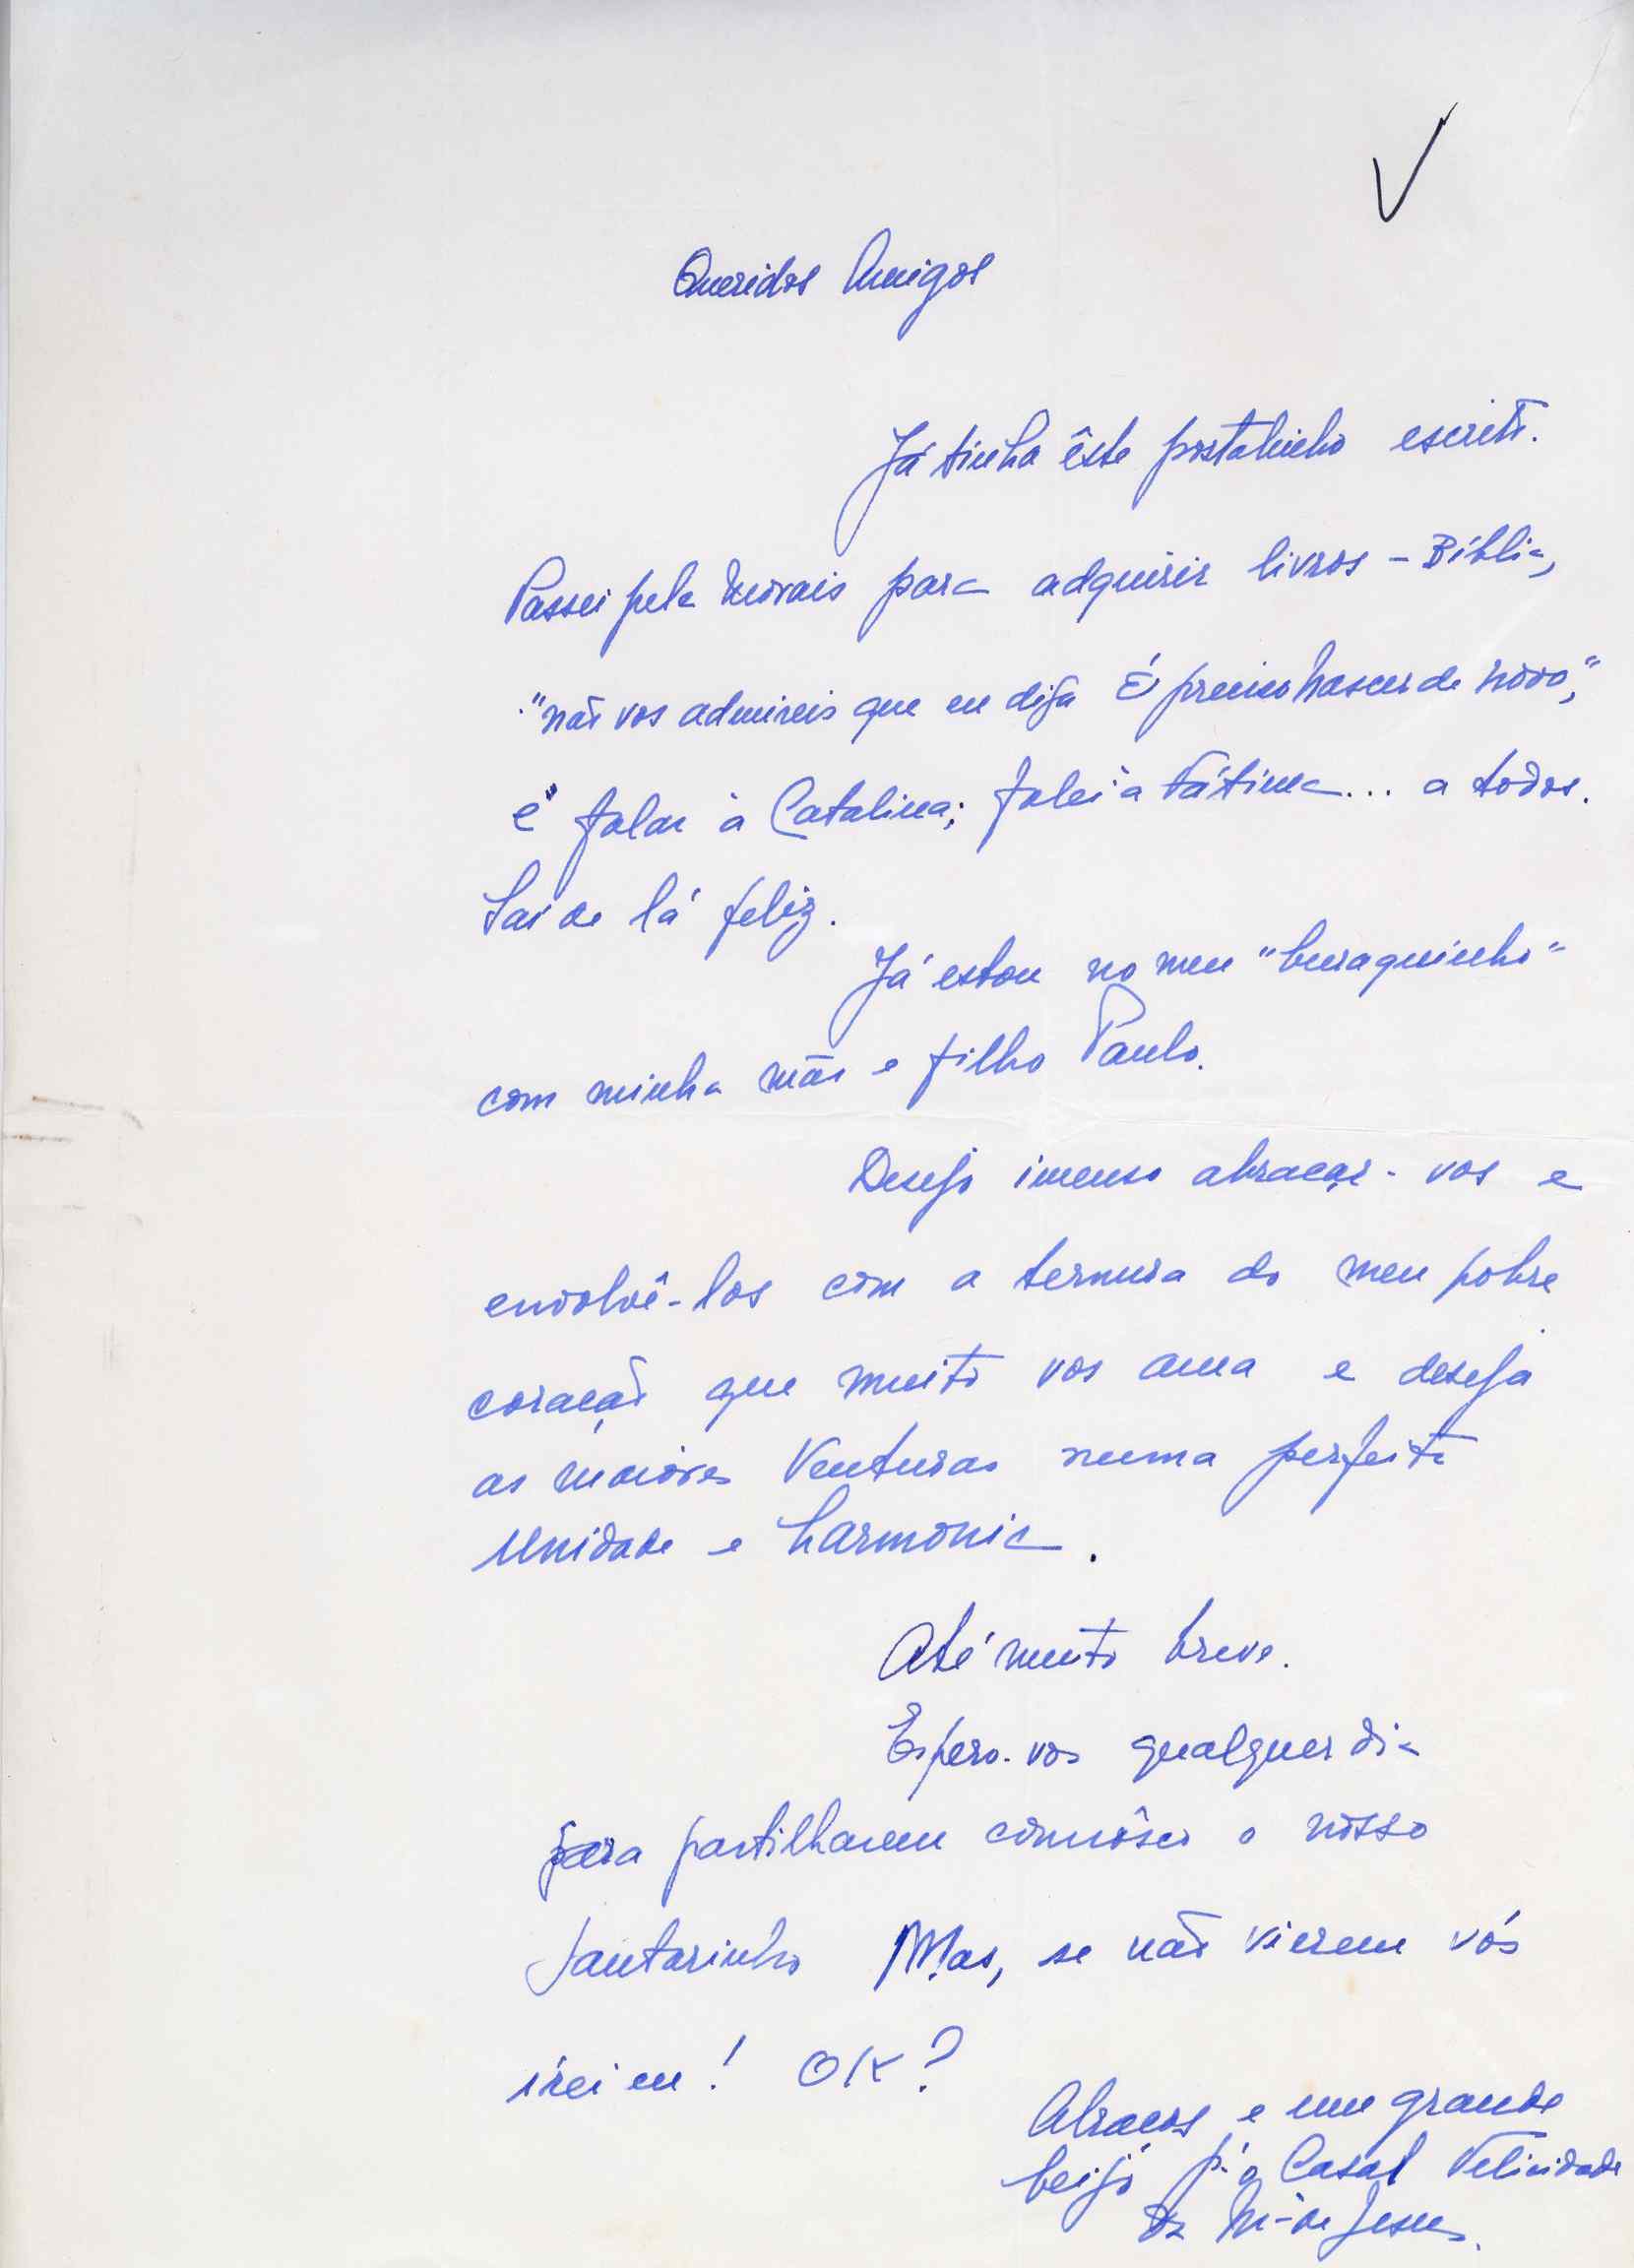 Queridos Amigos
Já tinha êste postalinho escrito.
Passei pela Morais para adquirir livros - Bíblia,
"não vos admireis que eu diga É preciso nascer de novo,"
e falar à Catalina; falei à Fátima... a todos.
Saí de lá feliz.
Já estou no meu "buraquinho"
com minha mãe e filho Paulo.
Desejo imenso abraçar-vos e
envolvê-los com a ternura do meu pobre
coração que muito vos ama e deseja
as maiores Venturas numa perfeita
Unidade e harmonia.
Até muito breve.
Espero-vos qualquer dia
para partilharem connôsco o nosso
Jantarinho Mas, se não vierem vós
irei eu! OK?
Abraços e um grande
beijo p.ª o Casal Felicidade
da Mª de Jesus.